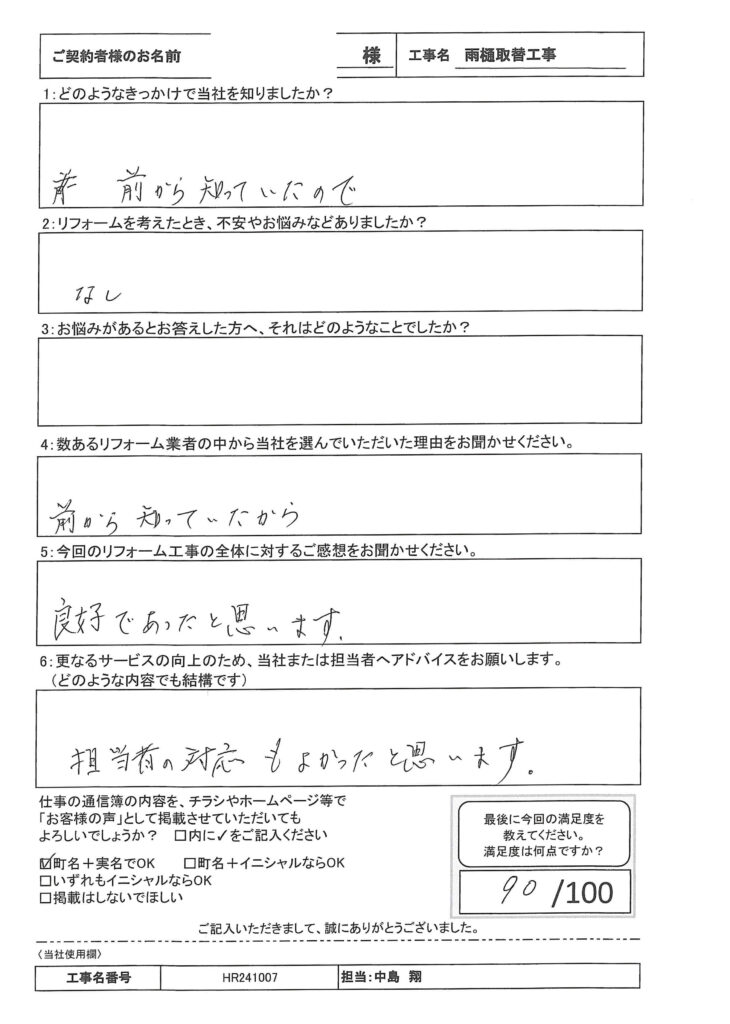 ご契約者様のお名前 様 工事名 雨樋取替工事
1:どのようなきっかけで当社を知りましたか?
前から知っていたので
2:リフォームを考えたとき、不安やお悩みなどありましたか?
なし
3:お悩みがあるとお答えした方へ、それはどのようなことでしたか?
4:数あるリフォーム業者の中から当社を選んでいただいた理由をお聞かせください。
前から知っていたから
5:今回のリフォーム工事の全体に対するご感想をお聞かせください。
良好であったと思います.
6:更なるサービスの向上のため、当社または担当者へアドバイスをお願いします。
(どのような内容でも結構です)
担当者の対応もよかったと思います。
仕事の通信簿の内容を、チラシやホームページ等で
「お客様の声」として掲載させていただいても
よろしいでしょうか? □内に✓をご記入ください
☑町名+実名でOK □町名+イニシャルならOK
□いずれもイニシャルならOK
□掲載はしないでほしい
最後に今回の満足度を
教えてください。
満足度は何点ですか?
90/100
ご記入いただきまして、誠にありがとうございました。
〈当社使用欄〉
工事名番号 HR241007 担当:中島 翔